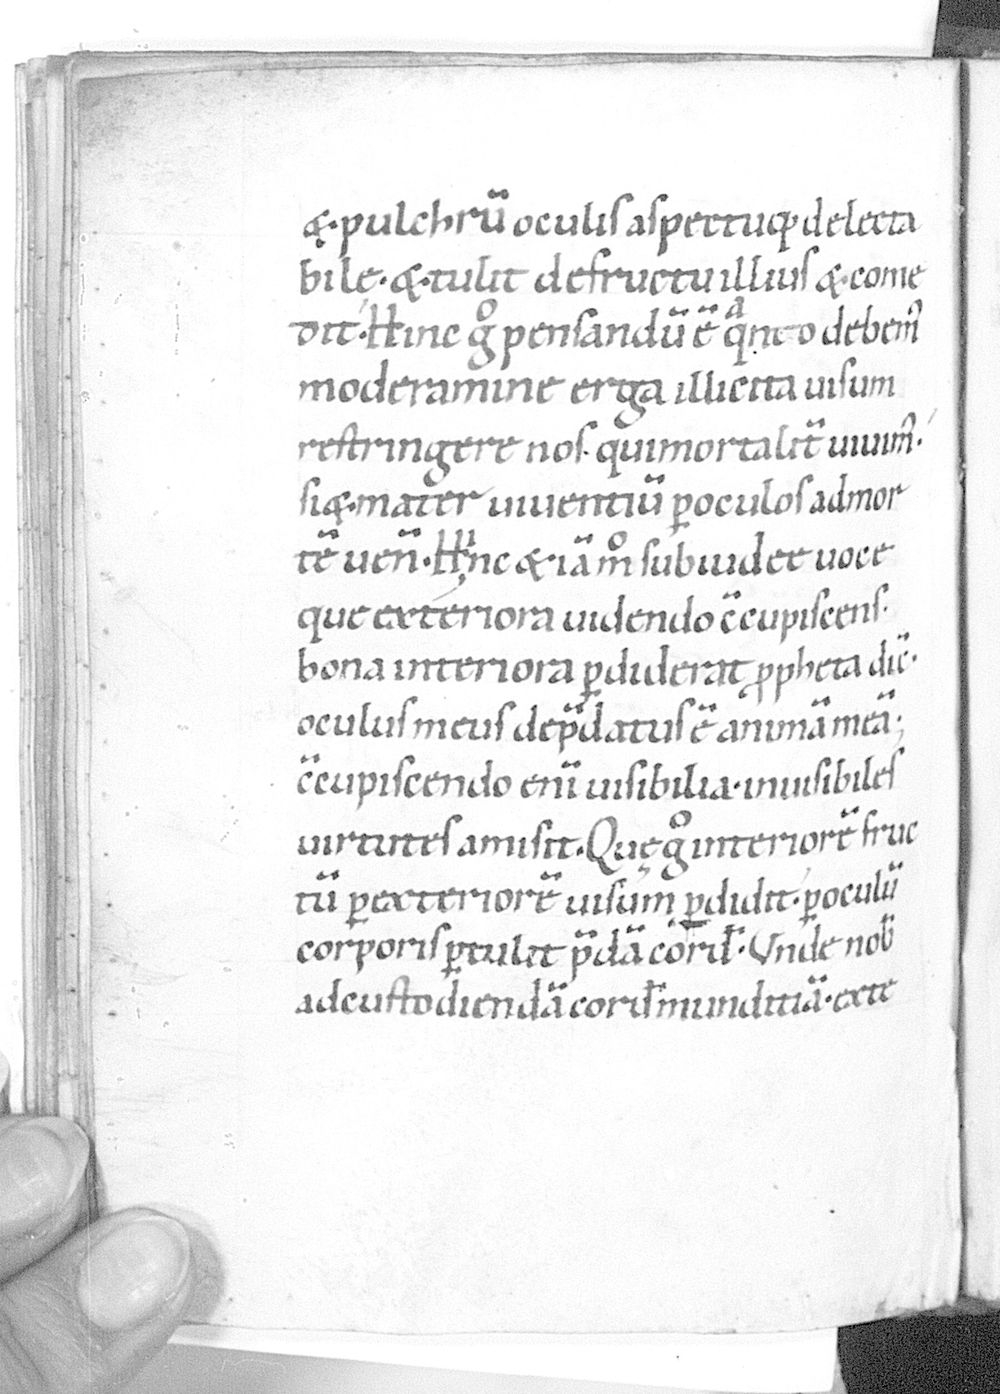 &· pulchrū oculis aspectuq; delecta
bile· &· tulit de fructu illius &· come
dit· Hinc g̊ pensandū ē qͣnto debem᷒
moderamine erga illicita uisum
restringere nos· qui mortalit̄ uiuim᷒·
si &· mater uiuentiū ꝑ oculos ad mor
tē uen̄· Hinc &iā m̊ sub iudee uoce
que exteriora uidendo c̄cupiscens·
bona interiora ꝑdiderat ꝓpheta dic̄·
oculus meus dep̄datus ē animā meā;
c̄cupiscendo enī uisibilia· inuisibiles
uirtutes amisit· Quę g̊ interiorē fruc
tū ꝑ exteriorē uisum ꝑdidit· ꝑ oculū
corporis ꝑtulit p̄dā cord̄· Unde nob̄
ad custodiendā cord̄ munditiā· exte